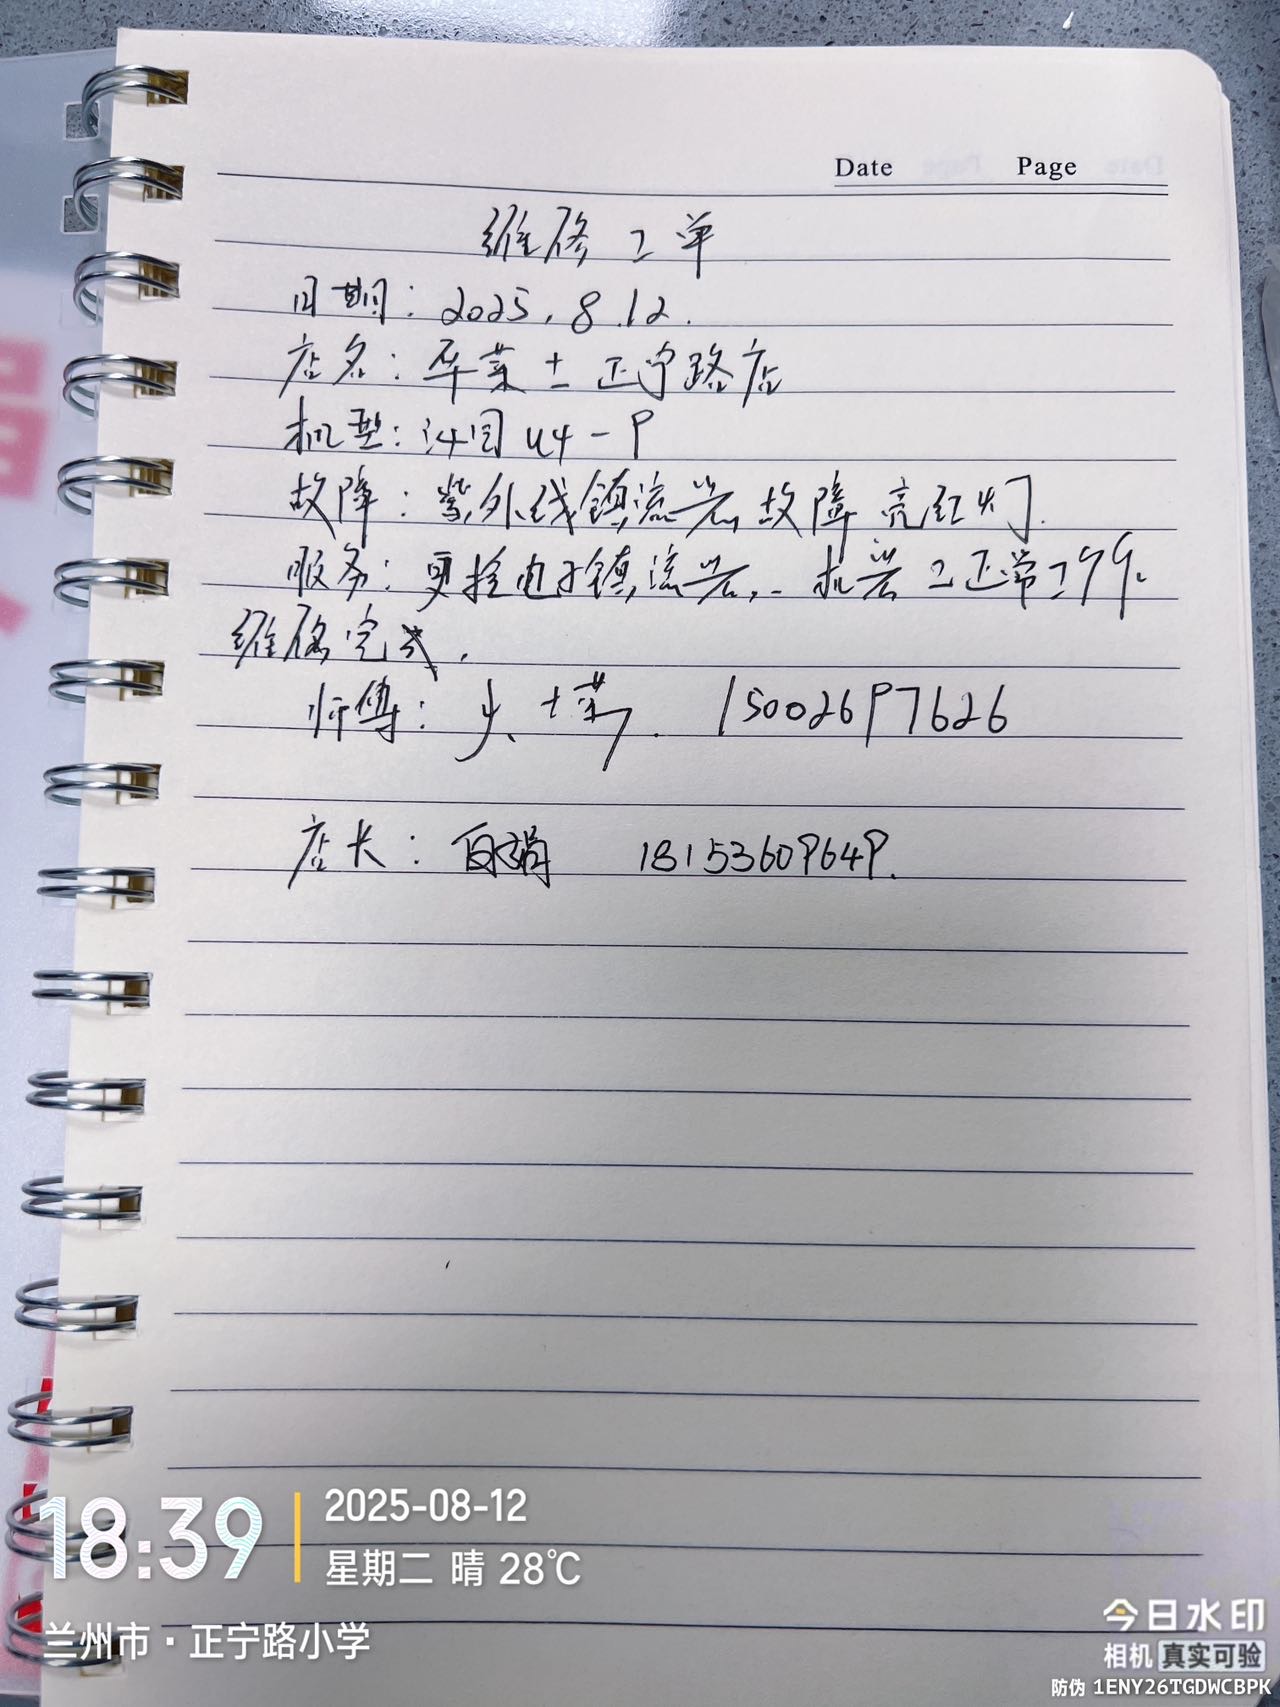 Date Page
维修工单
日期：2025.8.12.
店名：华莱士正宁路店
机型：沁园U4-P
故障：紫外线镇流器故障亮红灯.
服务：更换电子镇流器,. 机器工正常工作。
维修完成.
师傅： 15002697626
店长：白娟 18153609649.
18:39
2025-08-12
星期二 晴 28℃
兰州市·正宁路小学
今日水印
相机 真实可验
防伪 1ENY26TGDWCBPK